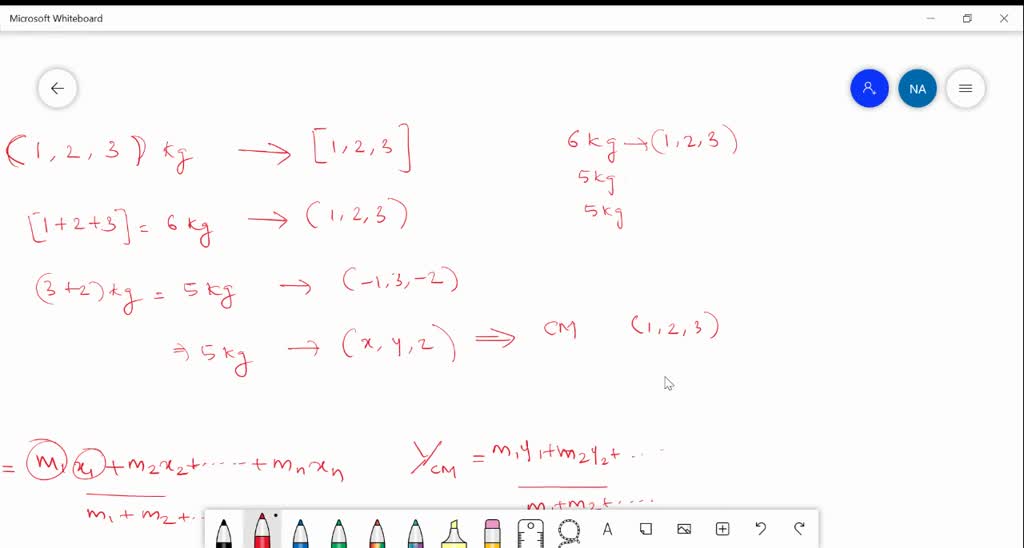 Microsoft Whiteboard
NA
(1, 2, 3) kg → [1, 2, 3]
[1+2+3] = 6 kg → (1, 2, 3)
(3+2) kg = 5 kg → (-1, 3, -2)
⇒ 5 kg → (x, y, z) ⇒ CM (1, 2, 3)
6 kg → (1, 2, 3)
5 kg
5 kg
= m₁ x₁ + m₂x₂ + ...... + mₙxₙ
m₁ + m₂ + ...
Y_CM = m₁y₁ + m₂y₂ + ....
m₁ + m₂ + ....
A